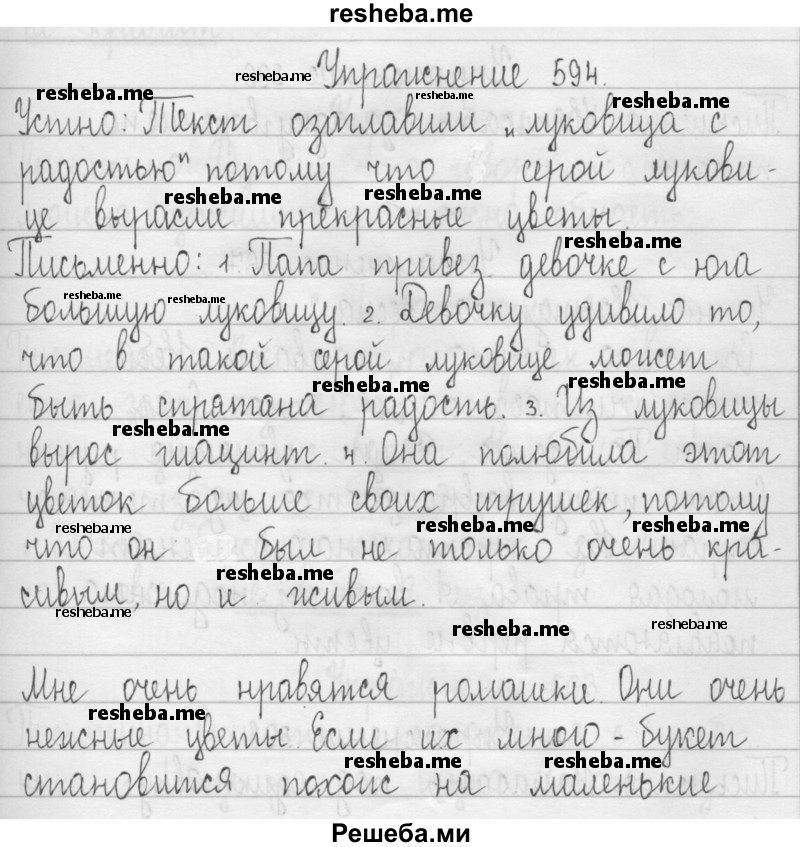 resheba.me
resheba.me Упражнение 594.
resheba.me resheba.me resheba.me
Устно: Текст озаглавили „луковица с
радостью" потому что серой лукови-
resheba.me resheba.me
це выросли прекрасные цветы.
resheba.me
Письменно: 1. Папа привез девочке с юга
resheba.me resheba.me
большую луковицу. 2. Девочку удивило то,
что в такой серой луковице может
resheba.me resheba.me
быть спрятана радость. 3. Из луковицы
resheba.me
вырос гиацинт. 4. Она полюбила этот
цветок больше своих игрушек, потому
resheba.me resheba.me resheba.me
что он был не только очень кра-
resheba.me
сивым, но и живым.
resheba.me
resheba.me resheba.me
Мне очень нравятся ромашки. Они очень
resheba.me
нежные цветы. Если их много - букет
resheba.me resheba.me
становится похож на маленькие
Решеба.ми